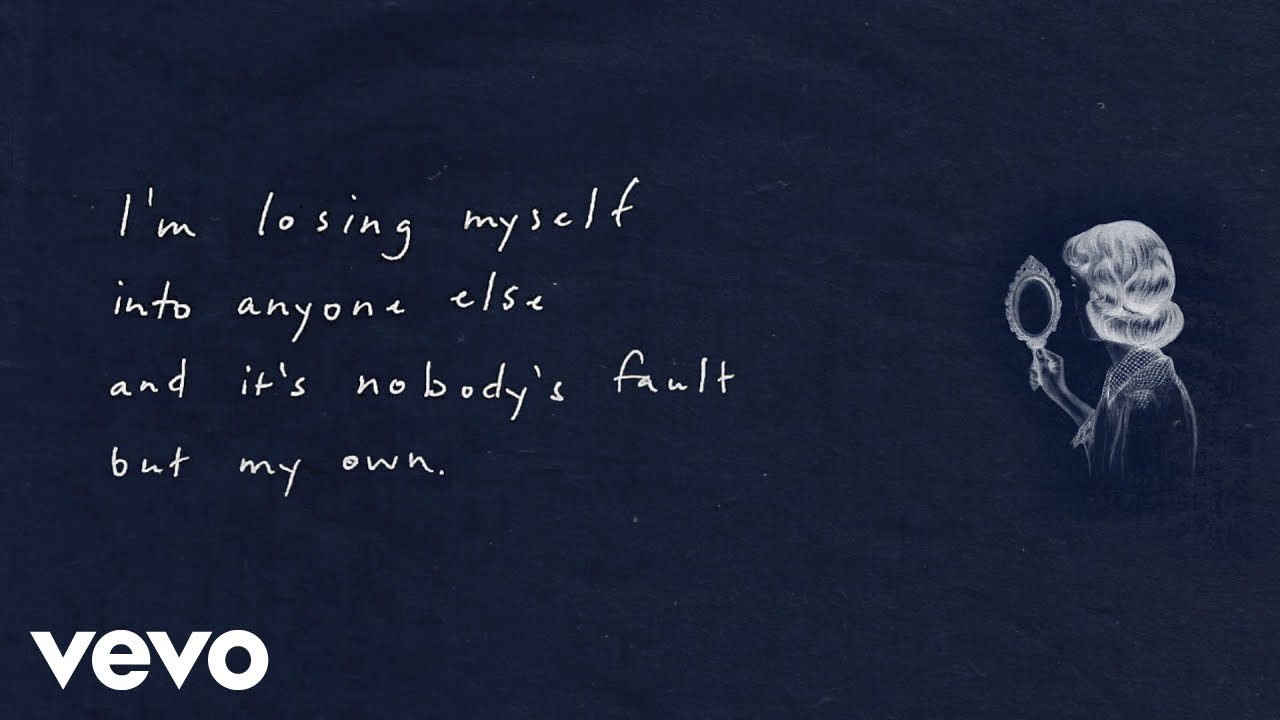 I'm losing myself
into anyone else
and it's nobody's fault
but my own.
vevo